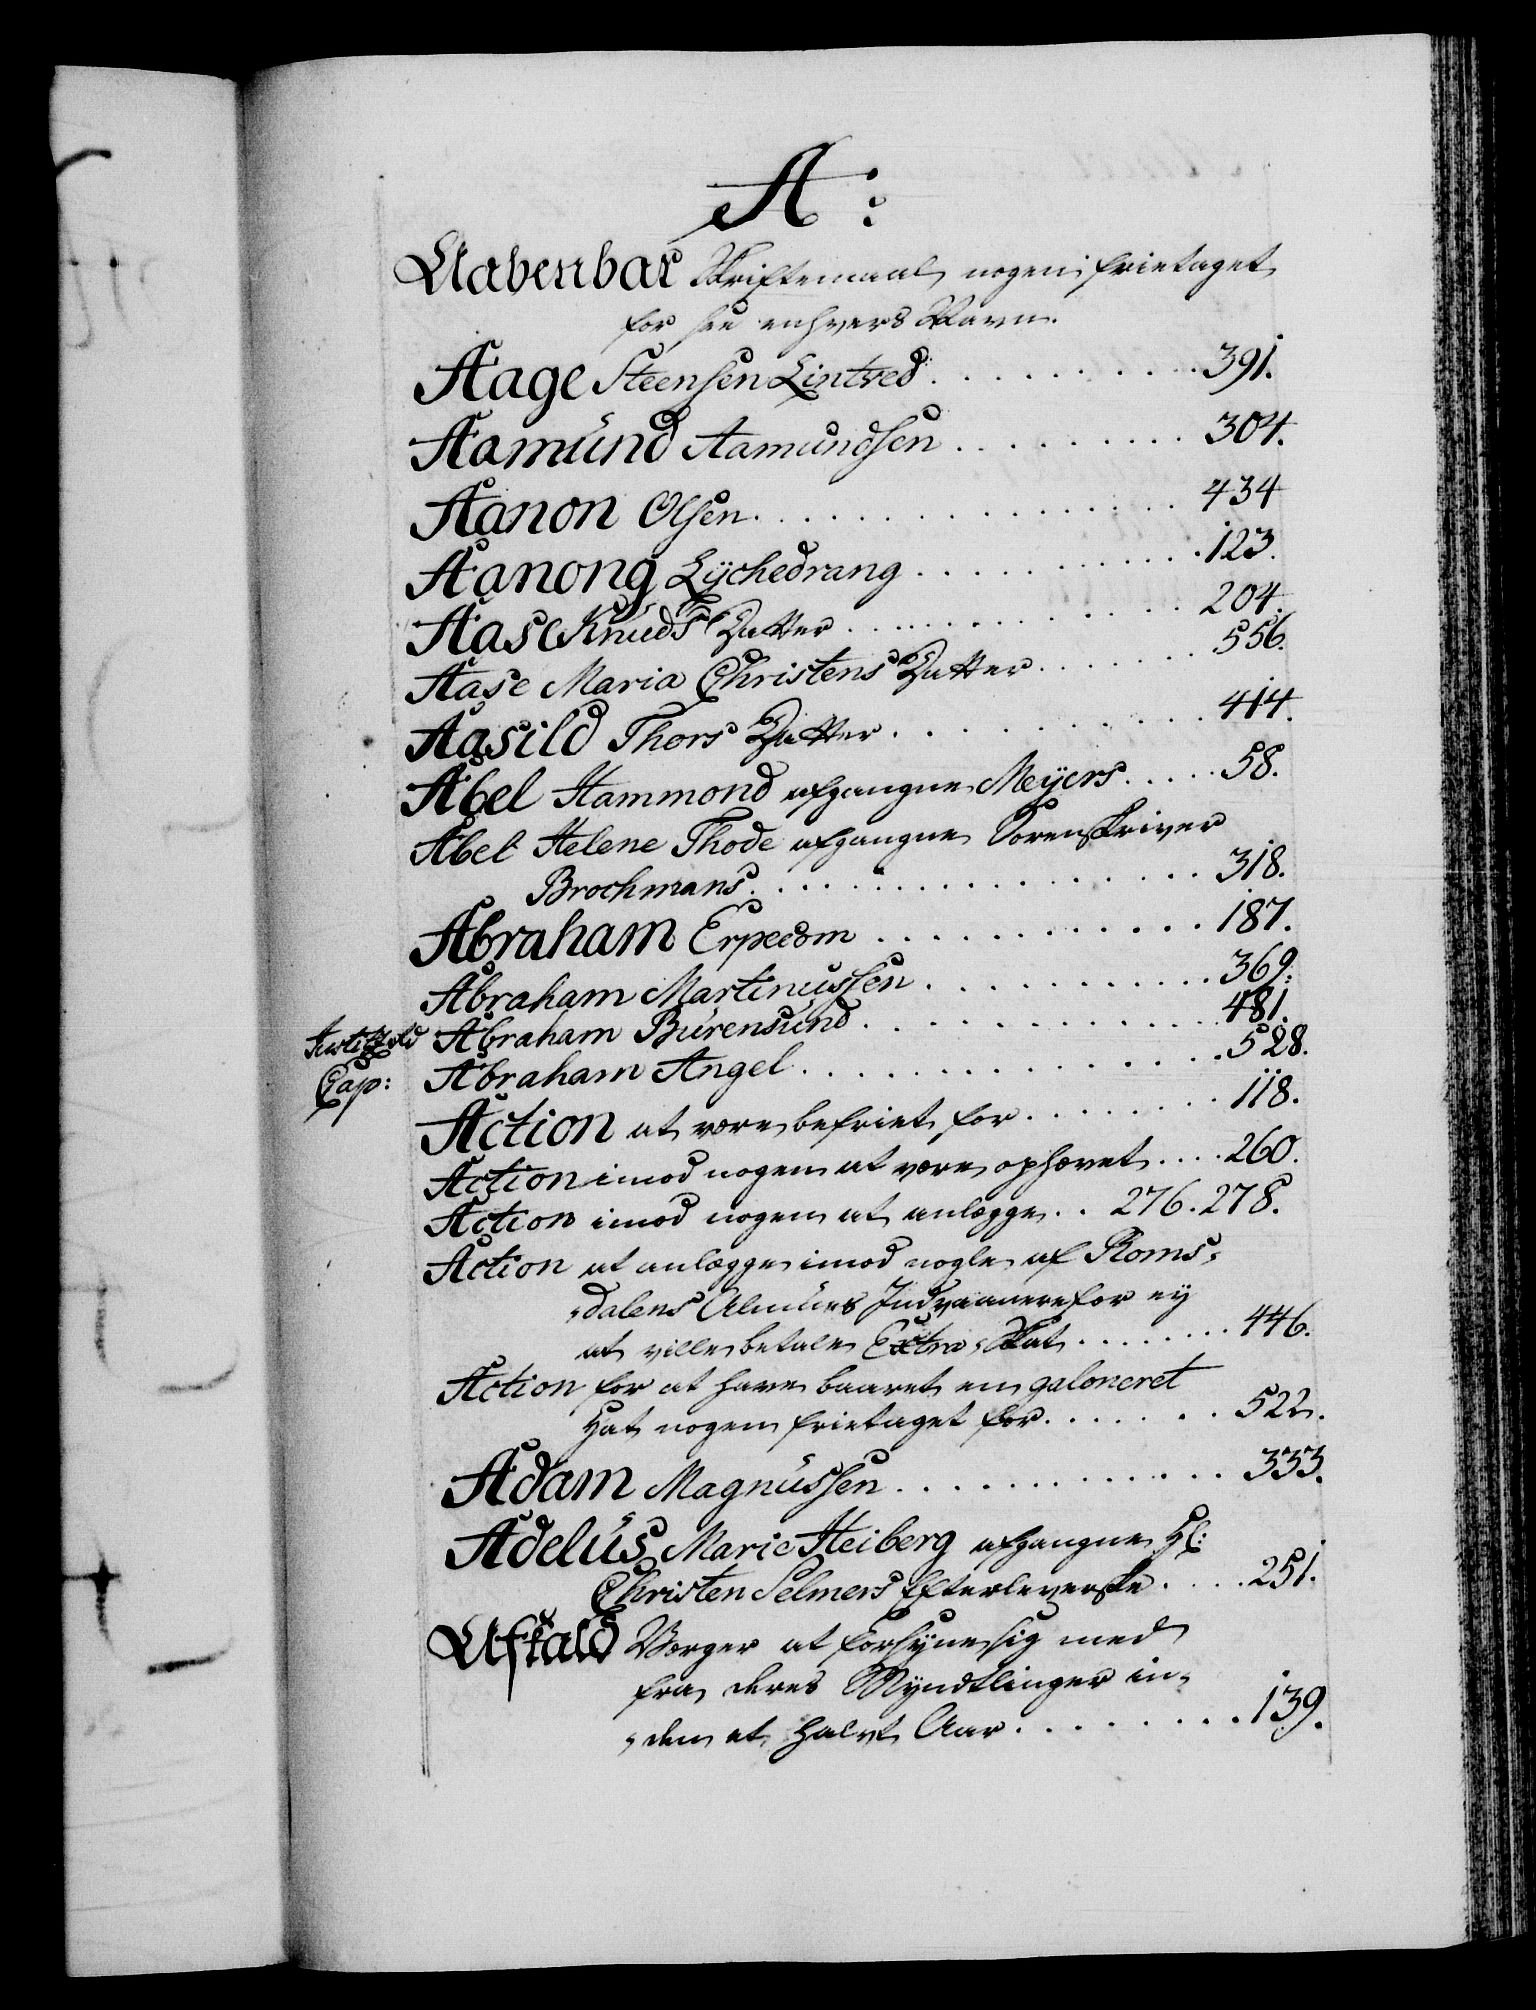 A:
Aabenbar Skriftemaal nogen frietaget
for see enhvers Navn.
Aage Steensen Lintved . . . . . . . . 391.
Aamund Aamundsen . . . . . . . . 304.
Aanon Olsen . . . . . . . . 434
Aanong Lÿchedrang . . . . . . . . 123.
Aase Knuds Datter . . . . . . . . 204.
Aase Maria Christens Datter . . . . . . 556.
Aasild Thors Datter . . . . . . . . 414.
Abel Hammond afgangne Meÿers . . . . . 58.
Abel Helene Thode afgangne Sorenskriver
Brochmans . . . . . . . . 318.
Abraham Erpecom . . . . . . . . 187.
Abraham Martinussen . . . . . . . . 369.
Abraham Bürensund . . . . . . . . 481.
Cap: Abraham Angel . . . . . . . . 528.
Action at være befriet for . . . . . . . 118.
Action imod nogen at være ophævet . . . . 260.
Action imod nogen at anlægge . . 276. 278.
Action at anlægge imod nogle af Roms-
-dalens Almues Indvaanere for ey
at ville betale Extra Skat . . . . . . . 446.
Action for at have baaret en galoneret
Hat nogen frietaget for . . . . . . . 522.
Adam Magnussen . . . . . . . . 333.
Adelus Marie Heiberg afgangne Hl:
Christen Selmers Efterleverske . . . . 251.
Afkald Værger at forsÿne sig med
fra deres Myndtlinger in-
-den et halvt Aar . . . . . . . . 139.